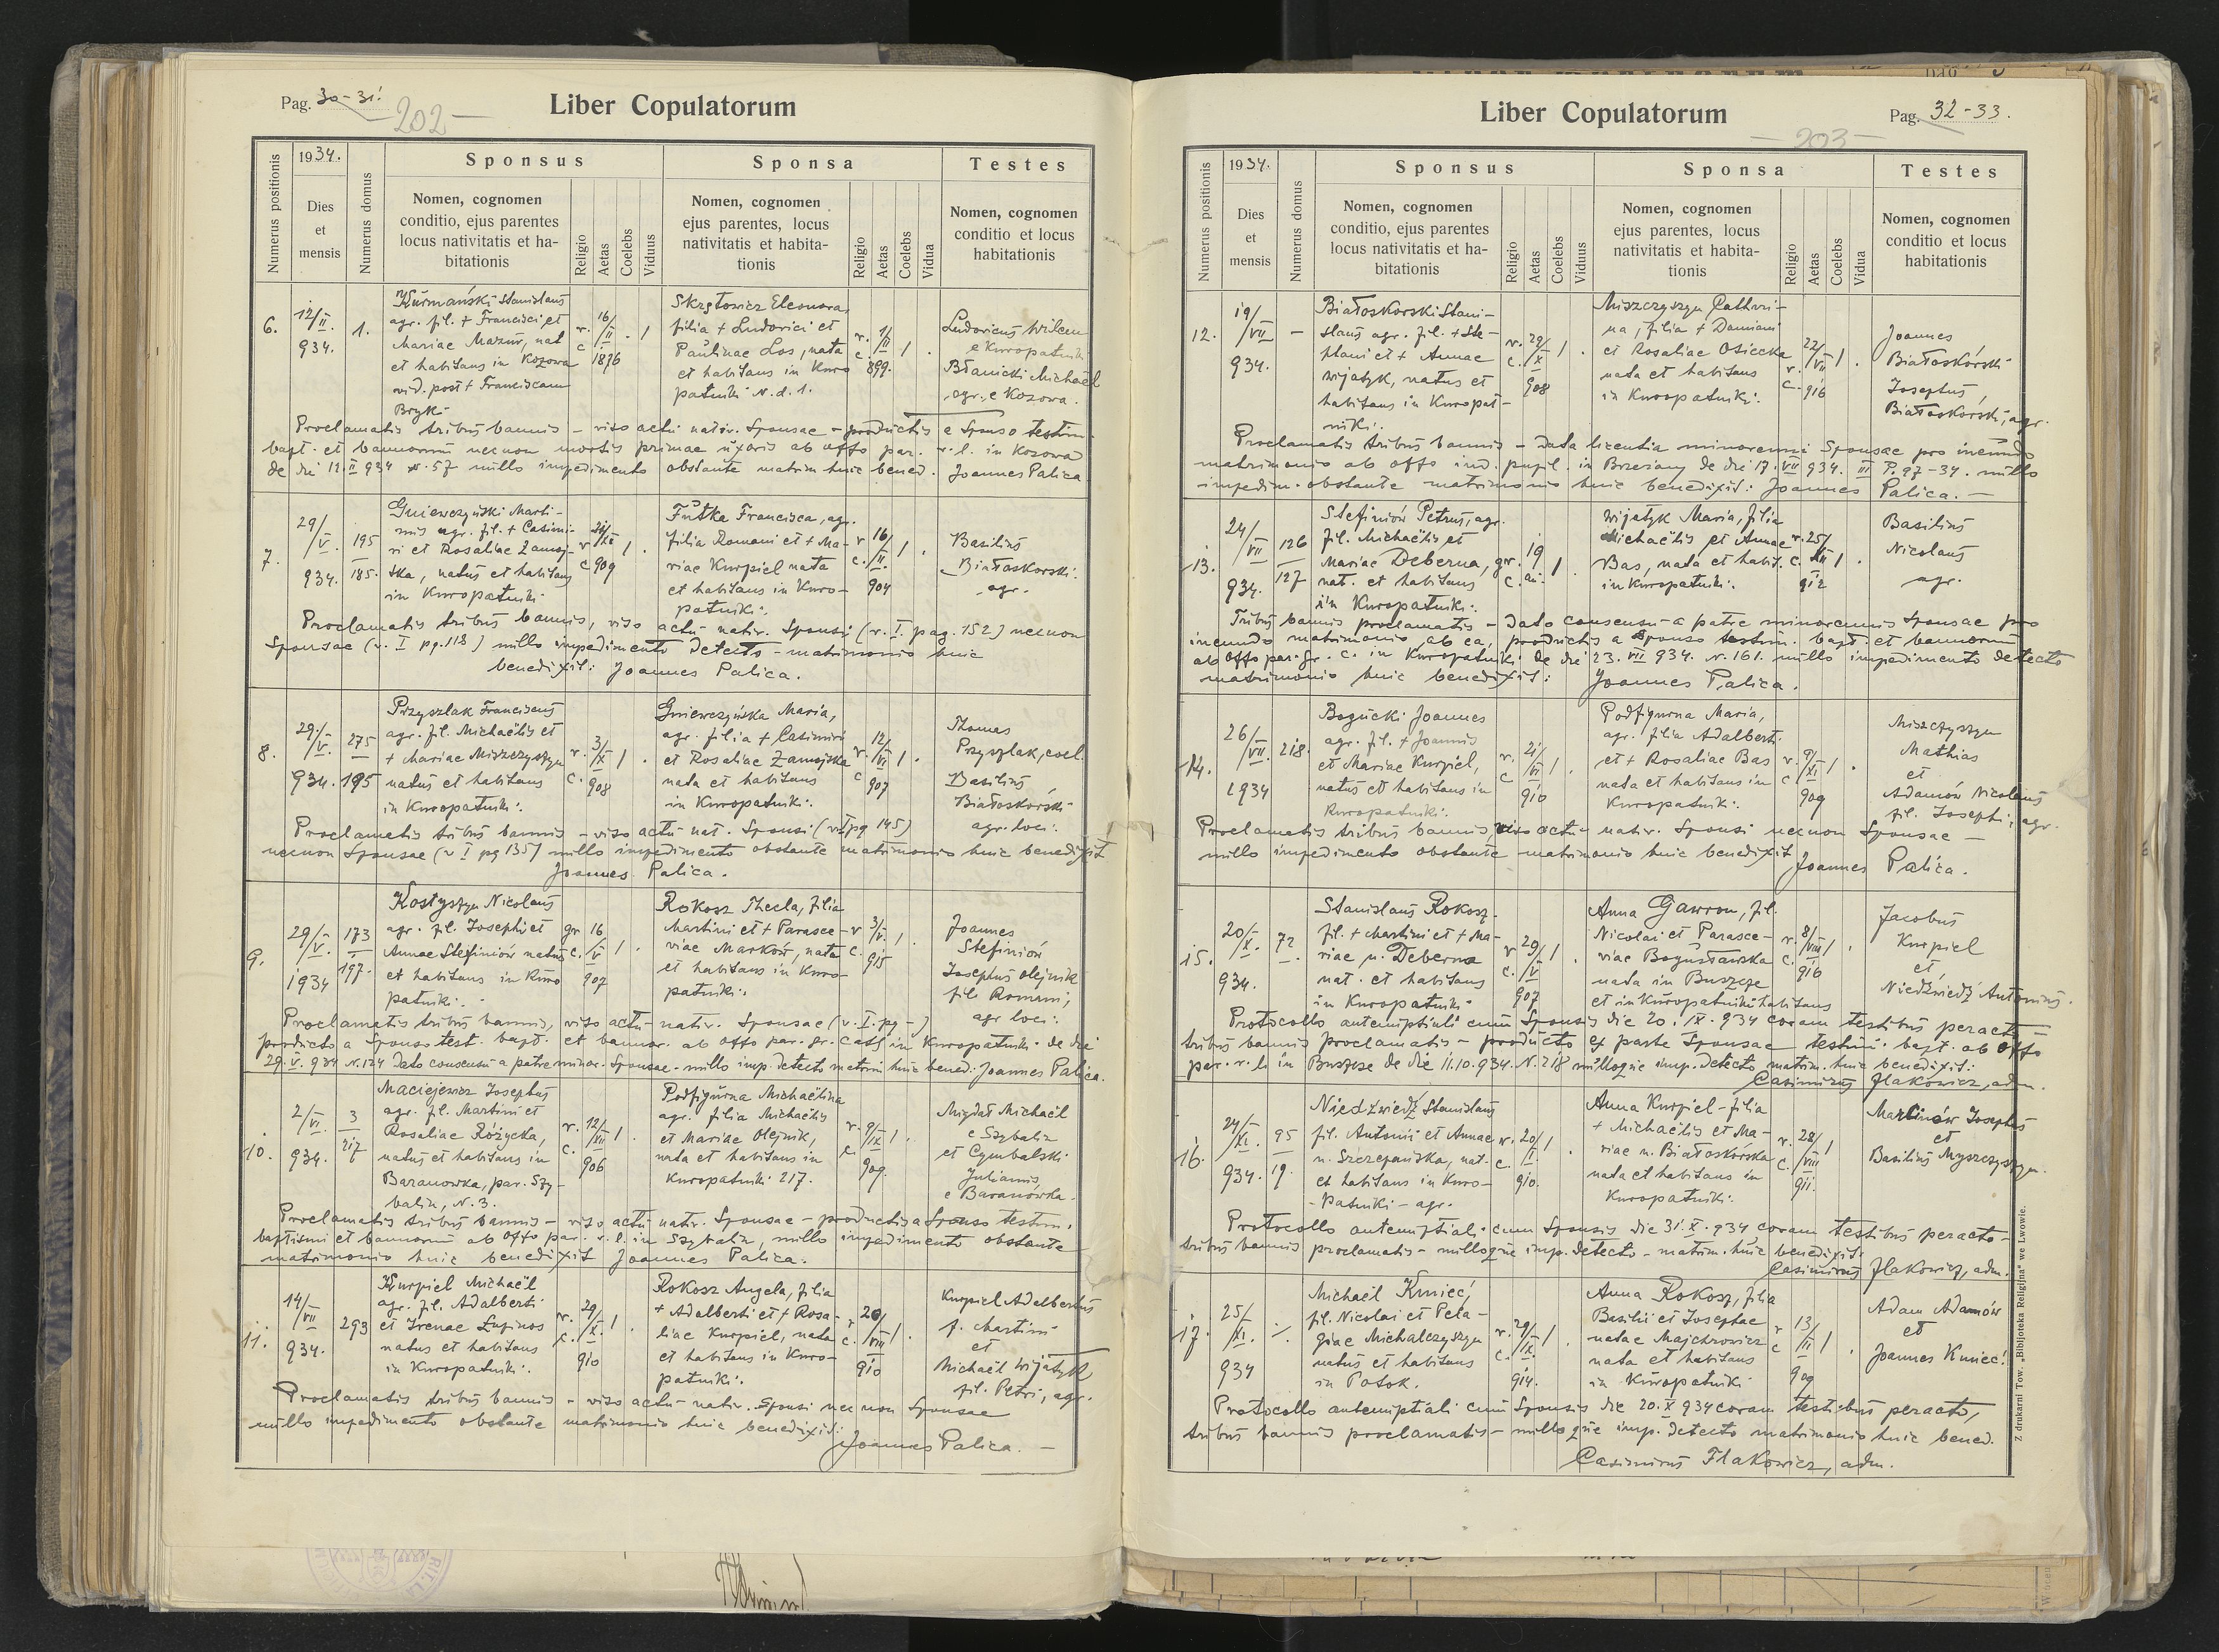 Pag. 30-31.
202
Liber Copulatorum
Numerus positionis
1934.
Dies
et
mensis
Numerus domus
Sponsus
Nomen, cognomen
conditio, ejus parentes
locus nativitatis et ha-
bitationis
Religio
Aetas
Coelebs
Viduus
Sponsa
Nomen, cognomen
ejus parentes, locus
nativitatis et habita-
tionis
Religio
Aetas
Coelebs
Vidua
Testes
Nomen, cognomen
conditio et locus
habitationis
6.
12/II.
934.
1.
Kurmański Stanislaus
agr. fil. + Francisci et
Mariae Mazur, nat
et habitans in Kozowa
vid. post + Franciscam
Bryk
r.
c
16/II
1876
. 1
Skrętowicz Eleonora,
filia + Ludovici et
Paulinae Los, nata
et habitans in Kuro
patniki N. d. 1.
r.
c.
1/II
899.
1 .
Ludovicus Wilczu
e Kuropatniki
Błanicki Michael
agr. e Kozowa.
Proclamatis tribus bannis – viso actu nativ. Sponsae – productis e Sponso testim.
bapt. et bannorum necnon mortis primae uxoris ab offo par. r. l. in Kozowa
de die 12.II 934 N. 57 nullo impedimento obstante matrim. huic bened. Joannes Palica
7.
29/V.
934.
195
185.
Gniewczyński Marti-
nus agr. fil. + Casimi-
ri et Rosaliae Zamoj-
ska, natus et habitans
in Kuropatniki
r
c
31/XI
909
1 .
Futka Francisca, agr.
filia Romani et + Ma-
riae Kurpiel nata
et habitans in Kuro-
patniki.
r
c.
16/II.
904
1 .
Basilius
Białoskorski
agr.
Proclamatis tribus bannis, viso actu nativ. Sponsi (v. I. pag. 152) necnon
Sponsae (v. I pg. 118) nullo impedimento detecto – matrimonio huic
benedixit: Joannes Palica.
8.
29/V.
934.
275
195
Przyszlak Franciscus
agr. fil. Michaëlis et
+ Mariae Miszczyszyn
natus et habitans
in Kuropatniki.
r.
c.
3/X
908
1 .
Gniewczyńska Maria,
agr. filia + Casimiri
et Rosaliae Zamojska
nata et habitans
in Kuropatniki.
r.
c
12/VI
907
1 .
Thomas
Przyszlak, coel.
Basilius
Białoskórski
agr. loci.
Proclamatis tribus bannis – viso actu nat. Sponsi (v I pg 145)
necnon Sponsae (v I pg 135) nullo impedimento obstante matrimonio huic benedixit
Joannes Palica.
9.
29/V.
1934
173
197.
Kostyszyn Nicolaus
agr. fil. Josephi et
Annae Stefiniów natus
et habitans in Kuro
patniki.
gr
c.
16/V
907
1 .
Rokosz Thecla, filia
Martini et + Parasce-
viae Marków, nata
et habitans in Kuro-
patniki.
r
c.
3/V.
915
1 .
Joannes
Stefiniów
Josephus Olejnik
fil Romani,
agr loci.
Proclamatis tribus bannis, viso actu nativ. Sponsae (v. I. pg –)
producto a Sponso test. bapt. et bannor. ab offo par. gr. cath in Kuropatniki de die
29.V. 934 N. 124 Dato consensu a patre minor. Sponsae – nullo imp. detecto matrim huic bened. Joannes Palica.
10.
2/VI.
934.
3
217
Maciejewicz Josephus
agr. fil. Martini et
Rosaliae Różycka,
natus et habitans in
Baranowka, par. Szy-
balin, N. 3.
r.
c.
12/VII
906
1 .
Podfigurna Michaëlina
agr. filia Michaëlis
et Mariae Olejnik,
nata et habitans in
Kuropatniki 217.
r.
c.
9/IX
909.
1 .
Migdał Michaël
e Szybalin
et Cymbalski
Julianus
e Baranówka.
Proclamatis tribus bannis – viso actu nativ. Sponsae – productis a Sponso testim.
baptismi et bannorum ab Offo par. r. l. in Szybalin, nullo impedimento obstante
matrimonio huic benedixit Joannes Palica.
11.
14/VII
934.
293
Kurpiel Michaël
agr. fil. Adalberti
et Irenae Łupinos
natus et habitans
in Kuropatniki.
r.
c.
29/X.
910
1 .
Rokosz Angela, filia
+ Adalberti et + Rosa-
liae Kurpiel, nata
et habitans in Kuro-
patniki.
r
c.
20/VIII
910
1 .
Kurpiel Adelbertus
f. Martini
et
Michaël Wijatyk
fil. Petri, agr.
Proclamatis tribus bannis – viso actu nativ. Sponsi necnon Sponsae
nullo impedimento obstante matrimonio huic benedixit:
Joannes Palica. –
Liber Copulatorum
Pag. 32-33.
203
Numerus positionis
1934.
Dies
et
mensis
Numerus domus
Sponsus
Nomen, cognomen
conditio, ejus parentes
locus nativitatis et ha-
bitationis
Religio
Aetas
Coelebs
Viduus
Sponsa
Nomen, cognomen
ejus parentes, locus
nativitatis et habita-
tionis
Religio
Aetas
Coelebs
Vidua
Testes
Nomen, cognomen
conditio et locus
habitationis
12.
19/VII
934.
–
Białoskorski Stani-
slaus agr. fil. + Ste-
phani et + Annae
Wijatyk, natus et
habitans in Kuropat-
niki.
r.
c.
29/X
908
1 .
Miszczyszyn Cathari-
na, filia + Damiani
et Rosaliae Osiecka
nata et habitans
in Kuropatniki.
r.
c.
22/VII
916
1 .
Joannes
Białoskórski
Josephus
Białoskorski, agr.
Proclamatis tribus bannis – data licentia minorenni Sponsae pro ineundo
matrimonio ab offo iud. pupil. in Brzeżany de die 17. VII 934. III P. 97-34. nullo
impedim. obstante matrimonio huic benedixit: Joannes Palica. –
13.
24/VII
934.
126
127
Stefiniów Petrus, agr.
fil. Michaëlis et
Mariae Deberna,
nat. et habitans
in Kuropatniki.
gr.
c.
19
an.
1
Wijatyk Maria, filia
Michaëlis et Annae
Bas, nata et habit.
in Kuropatniki.
r.
c.
25/XII
912
1 .
Basilius
Nicolaus
agr.
Tribus bannis proclamatis – dato consensu a patre minorennis Sponsae pro
ineundo matrimonio ab ea, productis a Sponso testim. bapt. et bannorum
ab offo par. gr. c. in Kuropatniki de die 23. VII 934. N. 161. nullo impedimento detecto
matrimonio huic benedixit: Joannes Palica.
14.
26/VII.
1934
218.
Bogucki Joannes
agr. fil. + Joannis
et Mariae Kurpiel,
natus et habitans in
Kuropatniki.
r.
c
21/VI
910
1 .
Podfigurna Maria,
agr. filia Adalberti
et + Rosaliae Bas
nata et habitans in
Kuropatniki.
r.
c
9/XI
909
1 .
Miszczyszyn
Mathias
et
Adamów Nicolaus
fil. Josephi, agr.
Proclamatis tribus bannis, viso actu nativ. Sponsi necnon Sponsae –
nullo impedimento obstante matrimonio huic benedixit
Joannes Palica.
15.
20/X.
934.
72.
Stanislaus Rokosz
fil. + Martini et + Ma-
riae n. Deberna
nat. et habitans
in Kuropatniki
r
c.
29/V
907
1 .
Anna Gawron, fil.
Nicolai et Parasce-
viae Bogusławska
nata in Buszcze
et in Kuropatniki habitans
r.
c.
8/VIII
916
1 .
Jacobus
Kurpiel
et
Niedźwiedź Antonius.
Protocollo antenuptiali cum Sponsis die 20. IX. 934 coram testibus peracto –
tribus bannis proclamatis – producto ex parte Sponsae testim. bapt. ab offo
par. r. l. in Buszcze de die 11.10.934. N. 218 nulloque imp. detecto matrim. huic benedixit:
Casimirus Flakowicz, adm.
16.
24/XI.
934.
95
19.
Niedźwiedź Stanislaus
fil. Antonii et Annae
n. Szczepańska, nat.
et habitans in Kuro-
patniki – agr.
r.
c.
20/I.
910.
1 .
Anna Kurpiel – filia
+ Michaëlis et Ma-
riae n. Białoskórska
nata et habitans in
Kuropatniki.
r.
c.
28/VIII
911.
1 .
Martinów Josephus
et
Basilius Myszczyszyn.
Protocollo antenuptiali cum Sponsis die 31. X. 934 coram testibus peracto –
tribus bannis proclamatis – nulloque imp. detecto – matrim. huic benedixit:
Casimirus Flakowicz, adm.
17.
25/XI.
934
Michaël Kmieć,
fil. Nicolai et Pela-
giae Michalczyszyn
natus et habitans
in Potok.
r.
c.
29/IX.
914.
1 .
Anna Rokosz, filia
Basilii et Josephae
natae Majchrowicz
nata et habitans
in Kuropatniki
r
c
13/III
909
1 .
Adam Adamów
et
Joannes Kmieć.
Protocollo antenuptiali cum Sponsis die 20. X 934 coram testibus peracto,
tribus bannis proclamatis – nulloque imp. detecto matrimonio huic bened.
Casimirus Flakowicz, adm.
Z drukarni Tow. „Bibljoteka Religijna" we Lwowie.